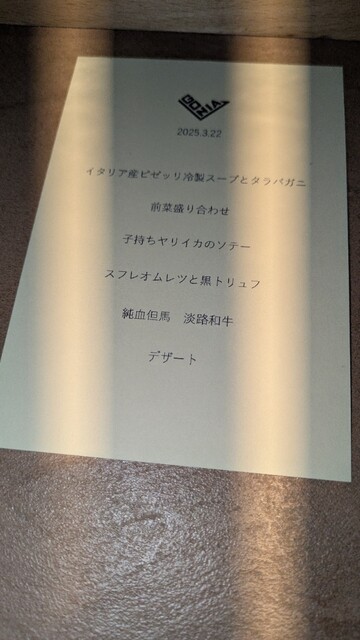 DONZIA
2025.3.22
イタリア産ピゼッリ冷製スープとタラバガニ
前菜盛り合わせ
子持ちヤリイカのソテー
スフレオムレツと黒トリュフ
純血但馬 淡路和牛
デザート